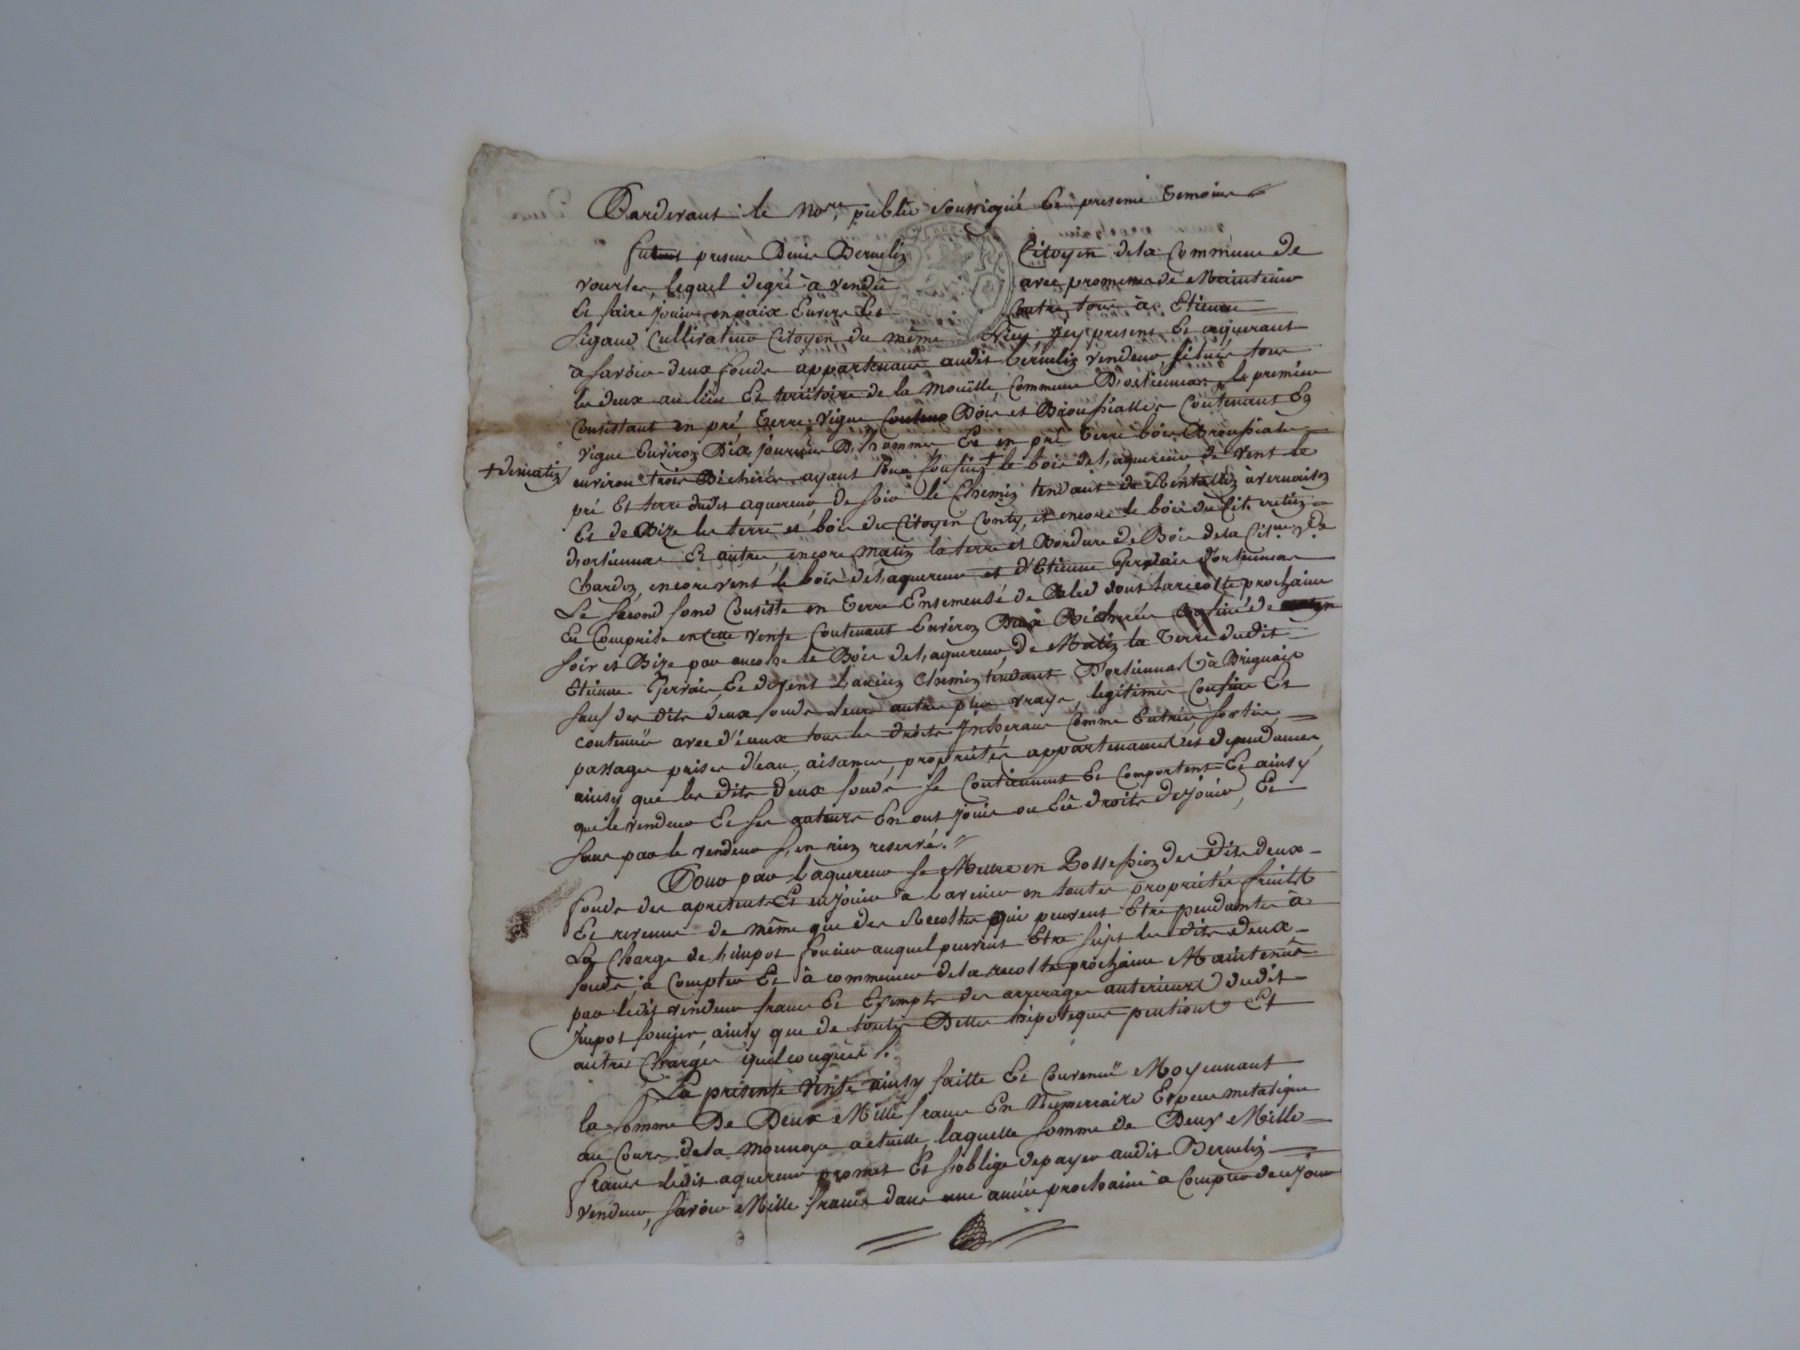 Pardevant le No.re public soussigné Et presens temoins
fut present Denis Bernelin Citoyen dela Commune de
vourles, lequel degré à vendu avec promesse de Maintenir
Et faire jouir en paix Envers Et Contre tous à Etienne
Rigaud Cultivateur Citoyen du même Lieu, jcy present Et aquerant
à savoir deux fonds appartenant audit Bernelin vendeur, situés tous
les deux au lieu Et territoire de la Mouille, Commune D'ortiennas, le premier
Consistant en pré terre, vigne, Bois et Broussialles Contenant En
vigne Environ Dix journées D'homme Et en pré terre bois Broussiale
environ trois Bicherées, ayant pour Confins + le bois de l'aquereur de vent le
+ de matin
pré Et terre dudit aquereur, de soir le Chemin tendant de à vernaison
Et de Bize les terre et bois du Citoyen Conty, et encore le bois du Cit.
d'ortiennas Et autre, encore matin la terre et Bordure de Bois dela Cit.ne V.e
Chardon, encore vent le bois de l'aquereur et d'Etienne Gervais d'ortiennas
Le second fond Consiste en terre Ensemensé de Bled dont la recolte prochaine
Est Comprise en cette vente Contenant Environ Deux Bicherées Confiné de
soir et Bize par encore le Bois de l'aquereur, de Matin la terre dudit
Etienne Gervais, Et de vent L'ancien Chemin tendant D'ortiennas à Brignais
sauf des dits deux fonds leurs autres plus vrays, legitimes Confins Et
contenue avec d'éceux tous les droits Inherans Comme Entrées, sorties,
passages prises d'eau, aisances, proprietés, appartenances et dependances,
ainsy que les dits deux fonds se Contiennent Et Comportent Et ainsy
que le vendeur Et ses auteurs En ont jouis ou Eû droits de jouir, Et
sans par le vendeur s'en rien reservé.
Pour par L'aquereur se Mettre en Possession des dits deux
fonds des apresent Et en jouir à L'avenir en toutes proprietés fruits
Et revenus de même que des Recoltes qui peuvent Etre pendantes à
La Charge de l'impot foncier auquel peuvent Etre sujet les dits deux
fonds, à Compter Et à commencer dela recolte prochaine Maintenus
par ledit vendeur francs Et Exempts des arrerages anterieurs dudit
Impot foncier, ainsy que de toutes Dettes hipoteques pentions Et
autres Charges quelconques.
La presente vente ainsy faitte Et Convenuë Moyennant
la somme De Deux Mille francs En Numeraire Espece metalique
au Cours dela monnoye actuelle, laquelle somme de Deux Mille
francs ledit aquereur promet Et s'oblige de payer audit Bernelin
vendeur, savoir Mille francs dans une année prochaine à Compter de ce jour